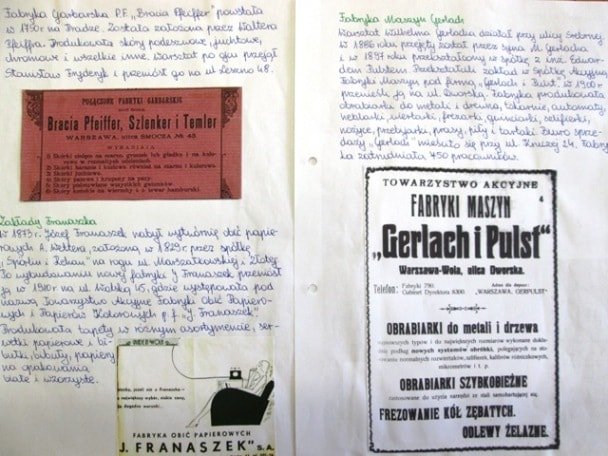 Fabryka Garbarska P.F. „Bracia Pfeiffer" powstała
w 1790r na Pradze. Została założona przez Waltera
Pfeiffra. Produkowała skóry podeszwowe, juchtowe,
chromowe i wszelkie inne. Warsztat po ojcu przejął
Stanisław Fryderyk i przeniósł go na ul Leszno 48.
POŁĄCZONE FABRYKI GARBARSKIE
Bracia Pfeiffer, Szlenker i Temler
WARSZAWA, ulica SMOCZA № 43.
WYRABIAJĄ
Zakłady Franaszka
W 1873r. Józef Franaszek nabył wytwórnię obić papie-
rowych A. Vettera, założoną w 1829r przez spółkę
„Spörlin i Rahn" na rogu ul. Marszałkowskiej i Złotej
Po wybudowaniu nowej fabryki J. Franaszek przeniósł
ją w 1910r na ul Wolską 45, gdzie występowała pod
nazwą Towarzystwo Akcyjne Fabryki Obić Papiero-
wych i Papierów Kolorowych p.f. „J. Franaszek"
Produkowała tapety w różnym asortymencie, ser-
wetki papierowe i bi-
bułki, bibuły, papiery
na opakowania
białe i wzorzyste.
FABRYKA OBIĆ PAPIEROWYCH
J. FRANASZEK" S.A.
Fabryka Maszyn Gerlach
Warsztat Wilhelma Gerlacha działał przy ulicy Srebrnej
W 1886 roku przejęty został przez syna M. Gerlacha
i w 1897 roku przekształcony w spółkę z inż. Edwar-
dem Pulstem Przekształcili zakład w Spółkę Akcyjną
Fabryki Maszyn pod firmą „Gerlach i Pulst". W 1906r
przenieśli ją na ul. Dworską. Fabryka produkowała
obrabiarki do metali i drewna, tokarnie, automaty
heblarki, wiertarki, frezarki, gwinciarki, szlifierki,
nożyce, przebijarki, prasy, piły i tartaki Biuro sprze-
daży „Gerlach" mieściło się przy ul. Kruczej 24. Fabryka
zatrudniała 450 pracowników.
TOWARZYSTWO AKCYJNE
FABRYKI MASZYN
„Gerlach i Pulst"
Warszawa-Wola, ulica Dworska.
Telefon: Fabryki 790.
Gabinet Dyrektora 8300.
Adres dla depesz:
„WARSZAWA, GERPULST".
OBRABIARKI do metali i drzewa
najnowszych typów i do największych rozmiarów wykonane dokła-
dnie podług nowych systemów obróbki, polegających na sto-
sowaniu normalnych rozwiertaków, szlifierek, kalibrów różniczkowych,
mikrometrów i t. p.
OBRABIARKI SZYBKOBIEŻNE
zastosowane do użycia narzędzi ze stali samohartującej się.
FREZOWANIE KÓŁ ZĘBATYCH.
ODLEWY ŻELAZNE.